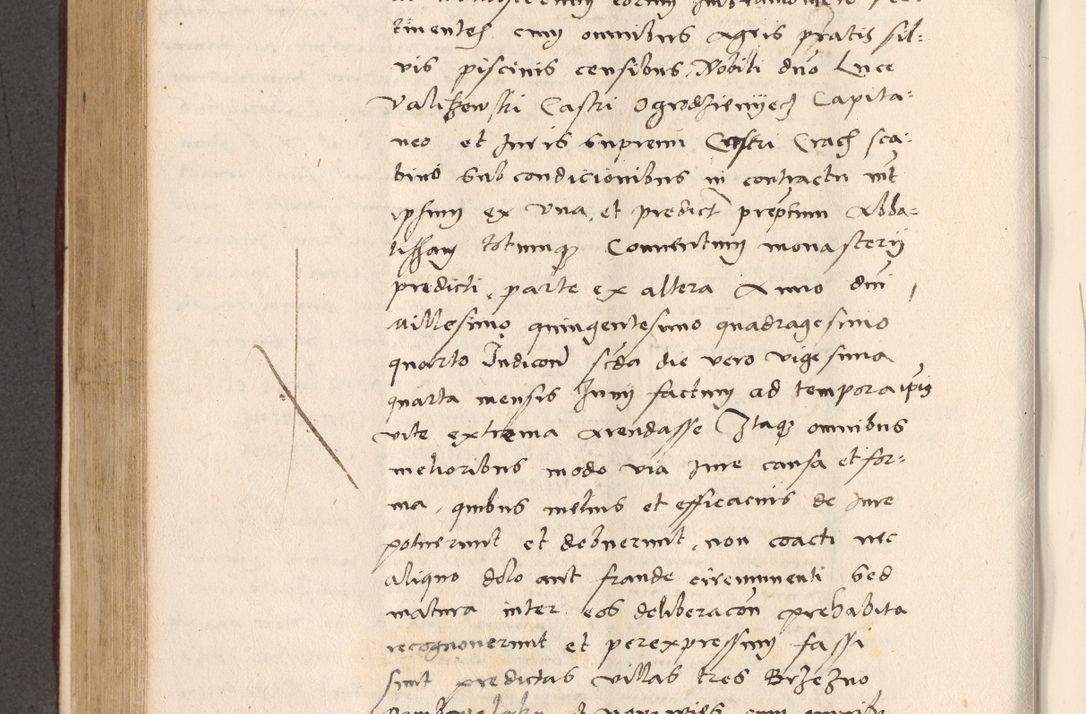 tinentes cum omnibus agris pratis sil-
vis piscinis censibus, Nobili dno Luce
Valiszewski Castri Ogrodzieniecz Capita-
neo et Juris supremi Castri Crac sca-
bino sub condicionibus in contractu int
ipsum ex una, et predict preptum Abba-
tissam totumqz Conventum monasterij
predicti, parte ex altera Anno dni
millesimo quingentesimo quadragesimo
quarto Indicion scda die vero vigesima
quarta mensis Junij factum ad tempora ipis
vite extrema Arendasse Itaqz omnibus
melioribus modo via Jure causa et for-
ma, quibus melius et efficacius de Jure
potuerunt et debuerunt, non coacti nec
aliquo dolo aut fraude circumventi sed
matura inter eos deliberacon prehabita
recognoverunt et per expressum fassi
sunt predictas villas tres Brzezno